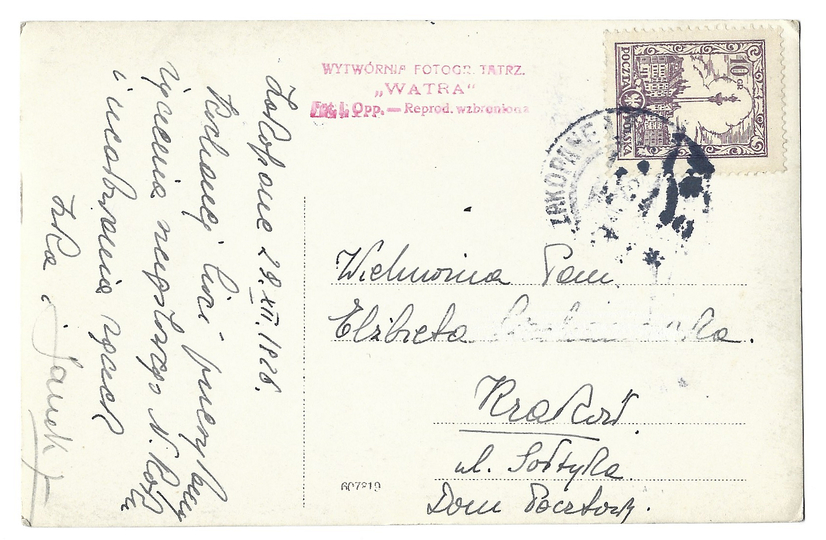 WYTWÓRNIA FOTOGR. TATRZ.
„WATRA"
Opp. — Reprod. wzbroniona
10 GR.
POCZTA POLSKA
ZAKOPANE
Zakopane 29.XII.1926.
Kochanej Lizi przesyłamy
życzenia najlepszego N. Roku
i ucałowania rączek
i Janek
Wielmożna Pani
Elżbieta
Kraków.
ul. Sołtyka
Dom Pocztowy.
607819